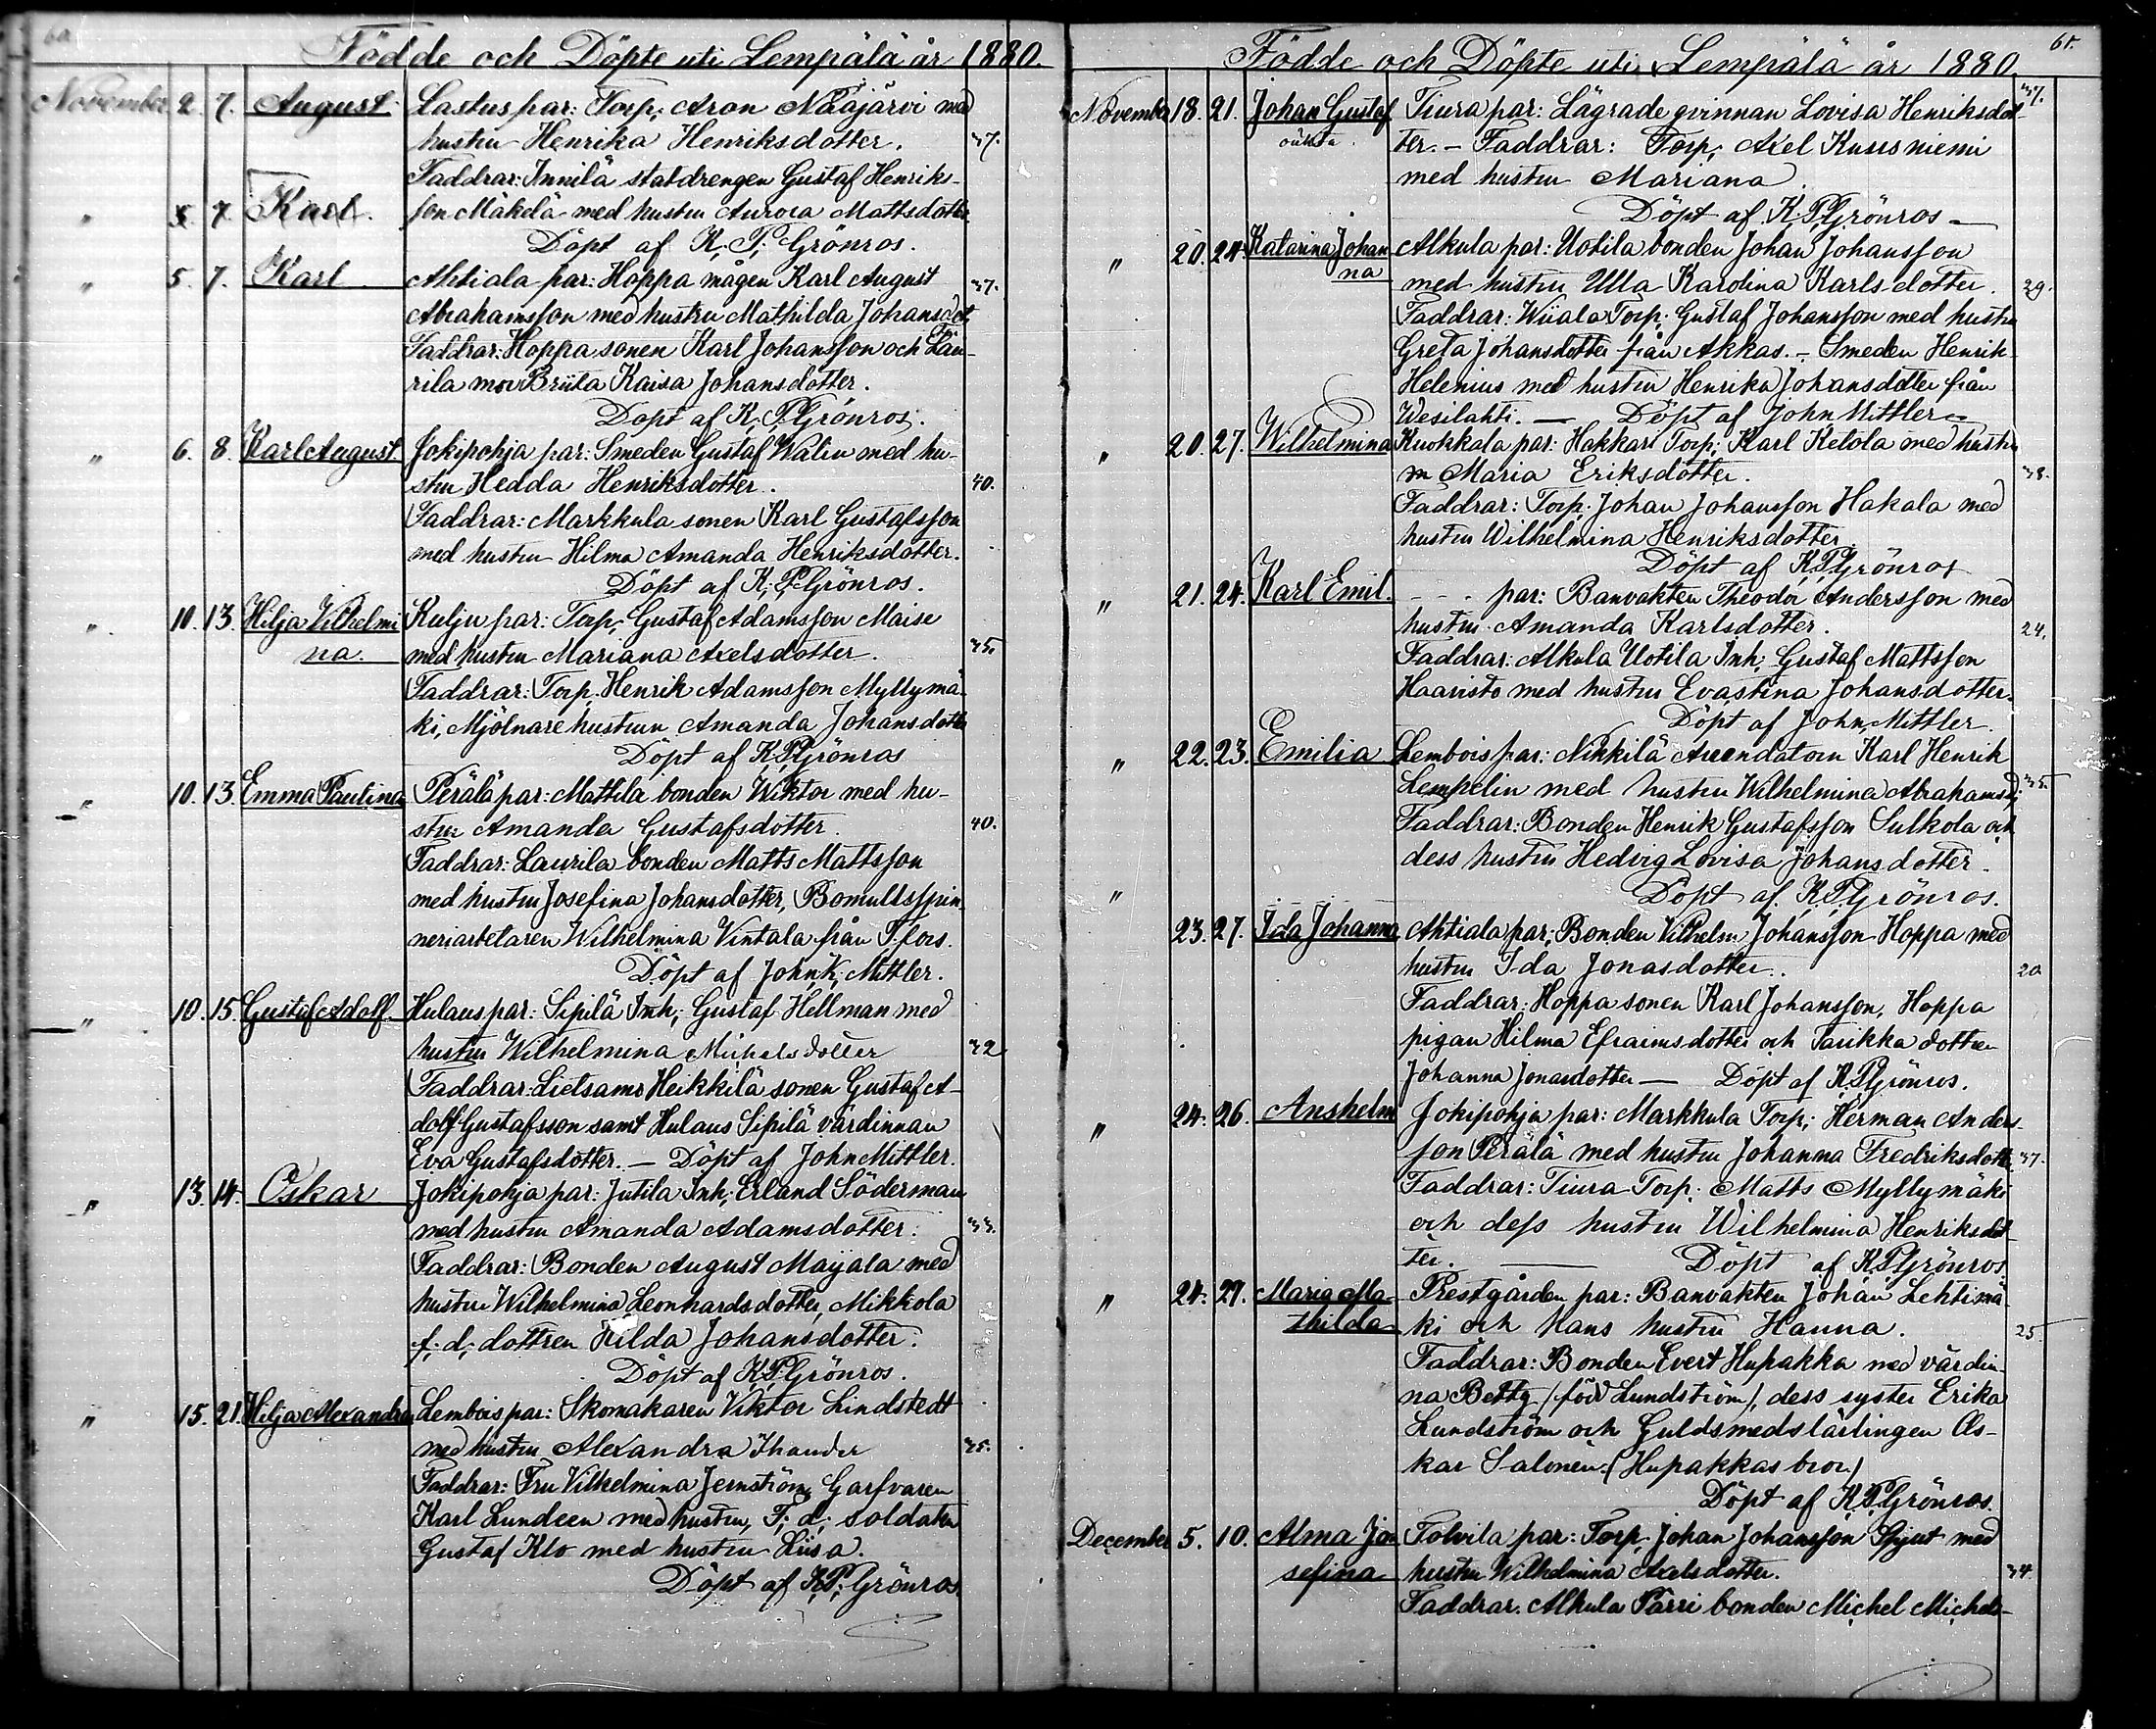 60
Födde och Döpte uti Lempälä år 1880.
November 2. 7. August. Lastus par: Torp; Aron Nääjärvi med
hustru Henrika Henriksdotter. 37.
Faddrar: Innilä statdrengen Gustaf Henriks-
" 5. 7. Karl. son Mäkelä med hustru Aurora Mattsdotter
Döpt af K; P; Grönros.
" 5. 7. Karl Ahtiala par: Hoppa mågen Karl August 37.
Abrahamsson med hustru Mathilda Johansdot
Faddrar: Hoppa sonen Karl Johansson och Lau-
rila mor Briita Kaisa Johansdotter.
Döpt af K; P; Grönros.
" 6. 8. Karl August Jokipohja par: Smeden Gustaf Walin med hu-
stru Hedda Henriksdotter. 40.
Faddrar: Markkula sonen Karl Gustafsson
med hustru Hilma Amanda Henriksdotter.
Döpt af K; P; Grönros.
" 10. 13. Hilja Vilhelmi Kulju par: Torp; Gustaf Adamsson Maise
na. med hustru Mariana Axelsdotter. 35.
Faddrar: Torp; Henrik Adamsson Myllymä-
ki, Mjölnare hustrun Amanda Johansdotter
Döpt af K; P; Grönros
" 10. 13. Emma Paulina Perälä par: Mattila bonden Wiktor med hu-
stru Amanda Gustafsdotter. 40.
Faddrar: Laurila bonden Matts Mattsson
med hustru Josefina Johansdotter, Bomullsspin-
neriarbetaren Wilhelmina Vintala från T.fors.
Döpt af John K; Mittler.
" 10. 15. Gustaf Adolf. Hulaus par: Sipilä Inh; Gustaf Hellman med
hustru Wilhelmina Michelsdotter 32
Faddrar: Lietsamo Heikkilä sonen Gustaf A-
dolf Gustafsson samt Hulaus Sipilä värdinnan
Eva Gustafsdotter. — Döpt af John Mittler.
" 13. 14. Oskar Jokipohja par: Jutila Inh; Erland Söderman
med hustru Amanda Adamsdotter. 33.
Faddrar: Bonden August Maijala med
hustru Wilhelmina Leonhardsdotter, Mikkola
f; d; dottren Hilda Johansdotter.
Döpt af K; P; Grönros.
" 15. 21. Hilja Alexandra Lembois par: Skomakaren Viktor Lindstedt
med hustru Alexandra Thander 35.
Faddrar: Fru Vilhelmina Jernström, Garfvaren
Karl Lundeen med hustru, F; d; soldaten
Gustaf Klo med hustru Liisa.
Döpt af K; P; Grönros.
61.
Födde och Döpte uti Lempälä år 1880.
November 18. 21. Johan Gustaf Tiura par: Lägrade qvinnan Lovisa Henriksdot- 37.
oäkta. ter. — Faddrar: Torp; Axel Kuusniemi
med hustru Mariana.
Döpt af K; P; Grönros —
" 20. 24. Katarina Johan Alkula par: Uotila bonden Johan Johansson
na med hustru Ulla Karolina Karlsdotter. 29.
Faddrar: Wiiala Torp; Gustaf Johansson med hustru
Greta Johansdotter från Akkas. — Smeden Henrik
Helenius med hustru Henrika Johansdotter från
Wesilahti. — Döpt af John Mittler
" 20. 27. Wilhelmina Kuokkala par: Hakkari Torp; Karl Ketola med hustru
Maria Eriksdotter. 38.
Faddrar: Torp; Johan Johansson Hakala med
hustru Wilhelmina Henriksdotter
Döpt af K; P; Grönros
" 21. 24. Karl Emil. - - - par: Banvakten Theodor Andersson med
hustru Amanda Karlsdotter. 24.
Faddrar: Alkula Uotila Inh; Gustaf Mattsson
Haavisto med hustru Evastina Johansdotter.
Döpt af John Mittler.
" 22. 23. Emilia Lembois par: Nikkilä Arrendatorn Karl Henrik
Lempelin med hustru Wilhelmina Abrahamsd; 35.
Faddrar: Bonden Henrik Gustafsson Sulkola och
dess hustru Hedvig Lovisa Johansdotter.
" Döpt af K; P; Grönros.
23. 27. Ida Johanna Ahtiala par; Bonden Vilhelm Johansson Hoppa med
hustru Ida Jonasdotter. 20
Faddrar: Hoppa sonen Karl Johansson, Hoppa
pigan Hilma Efraimsdotter och Tarikka dottren
Johanna Jonasdotter — Döpt af K; P; Grönros.
" 24. 26. Anshelm Jokipohja par: Markkula Torp; Herman Anders-
son Perälä med hustru Johanna Fredriksdotter 37.
Faddrar: Tiura Torp; Matts Myllymäki
och dess hustru Wilhelmina Henriksdot-
ter. — Döpt af K; P; Grönros
" 24. 27. Maria Ma- Prestgården par: Banvakten Johan Lehtimä-
thilda ki och hans hustru Hanna. 25
Faddrar: Bonden Evert Hupakka med värdin-
na Betty (född Lundström), dess syster Erika
Lundström och Guldsmedslärlingen Os-
kar Salonen (Hupakkas bror.)
Döpt af K; P; Grönros.
December 5. 10. Alma Jo- Tolvila par: Torp; Johan Johansson Spjut med
sefina hustru Wilhelmina Axelsdotter. 34
Faddrar: Alkula Pärri bonden Michel Michels-